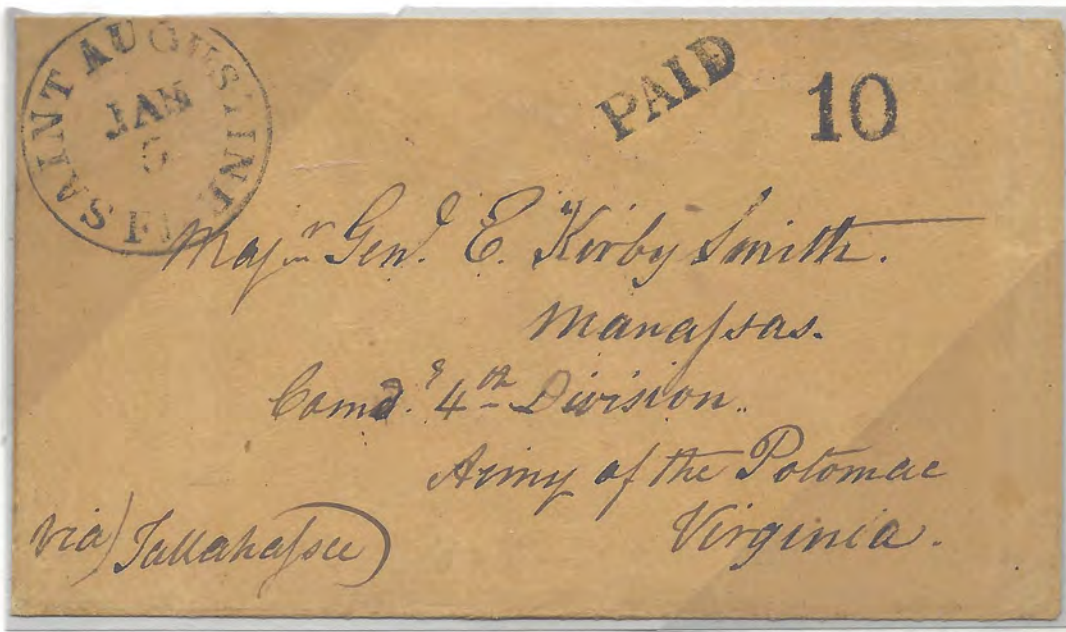 SAINT AUGUSTINE Fl.
JAN
5
PAID
10
Majr. Genl. E. Kirby Smith.
Manaſsas.
Comdg. 4th Division.
Army of the Potomac
Virginia.
via) Tallahaſsee)